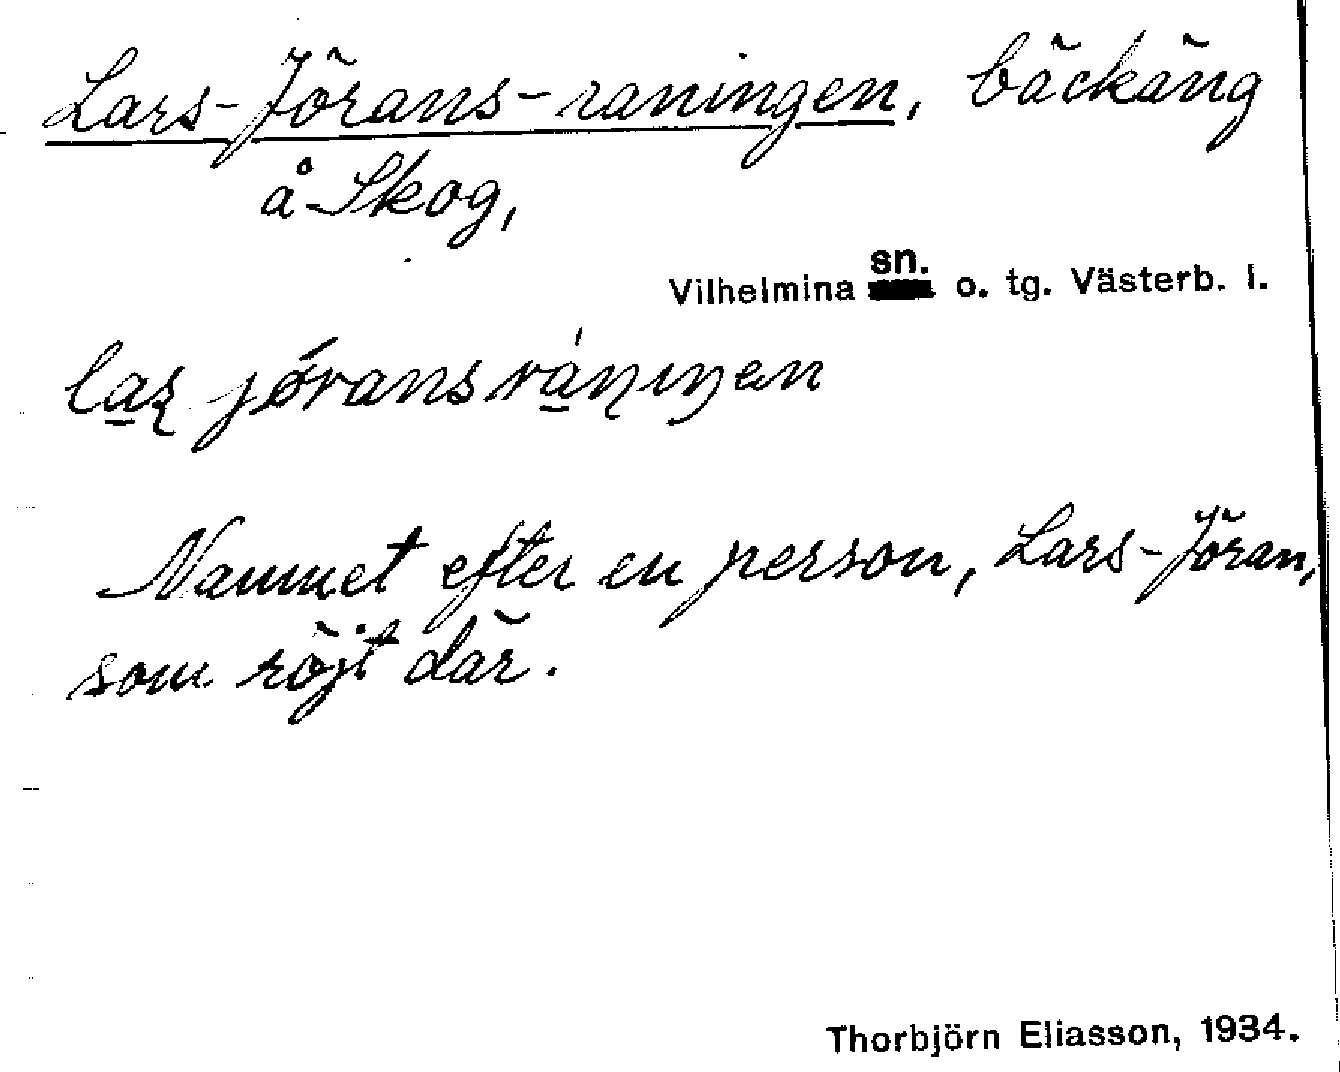 Lars-Jörans-raningen, bäckäng
å Skog,
Vilhelmina sn. o. tg. Västerb. l.
Namnet efter en person, Lars-Jöran,
som röjt där.
Thorbjörn Eliasson, 1934.